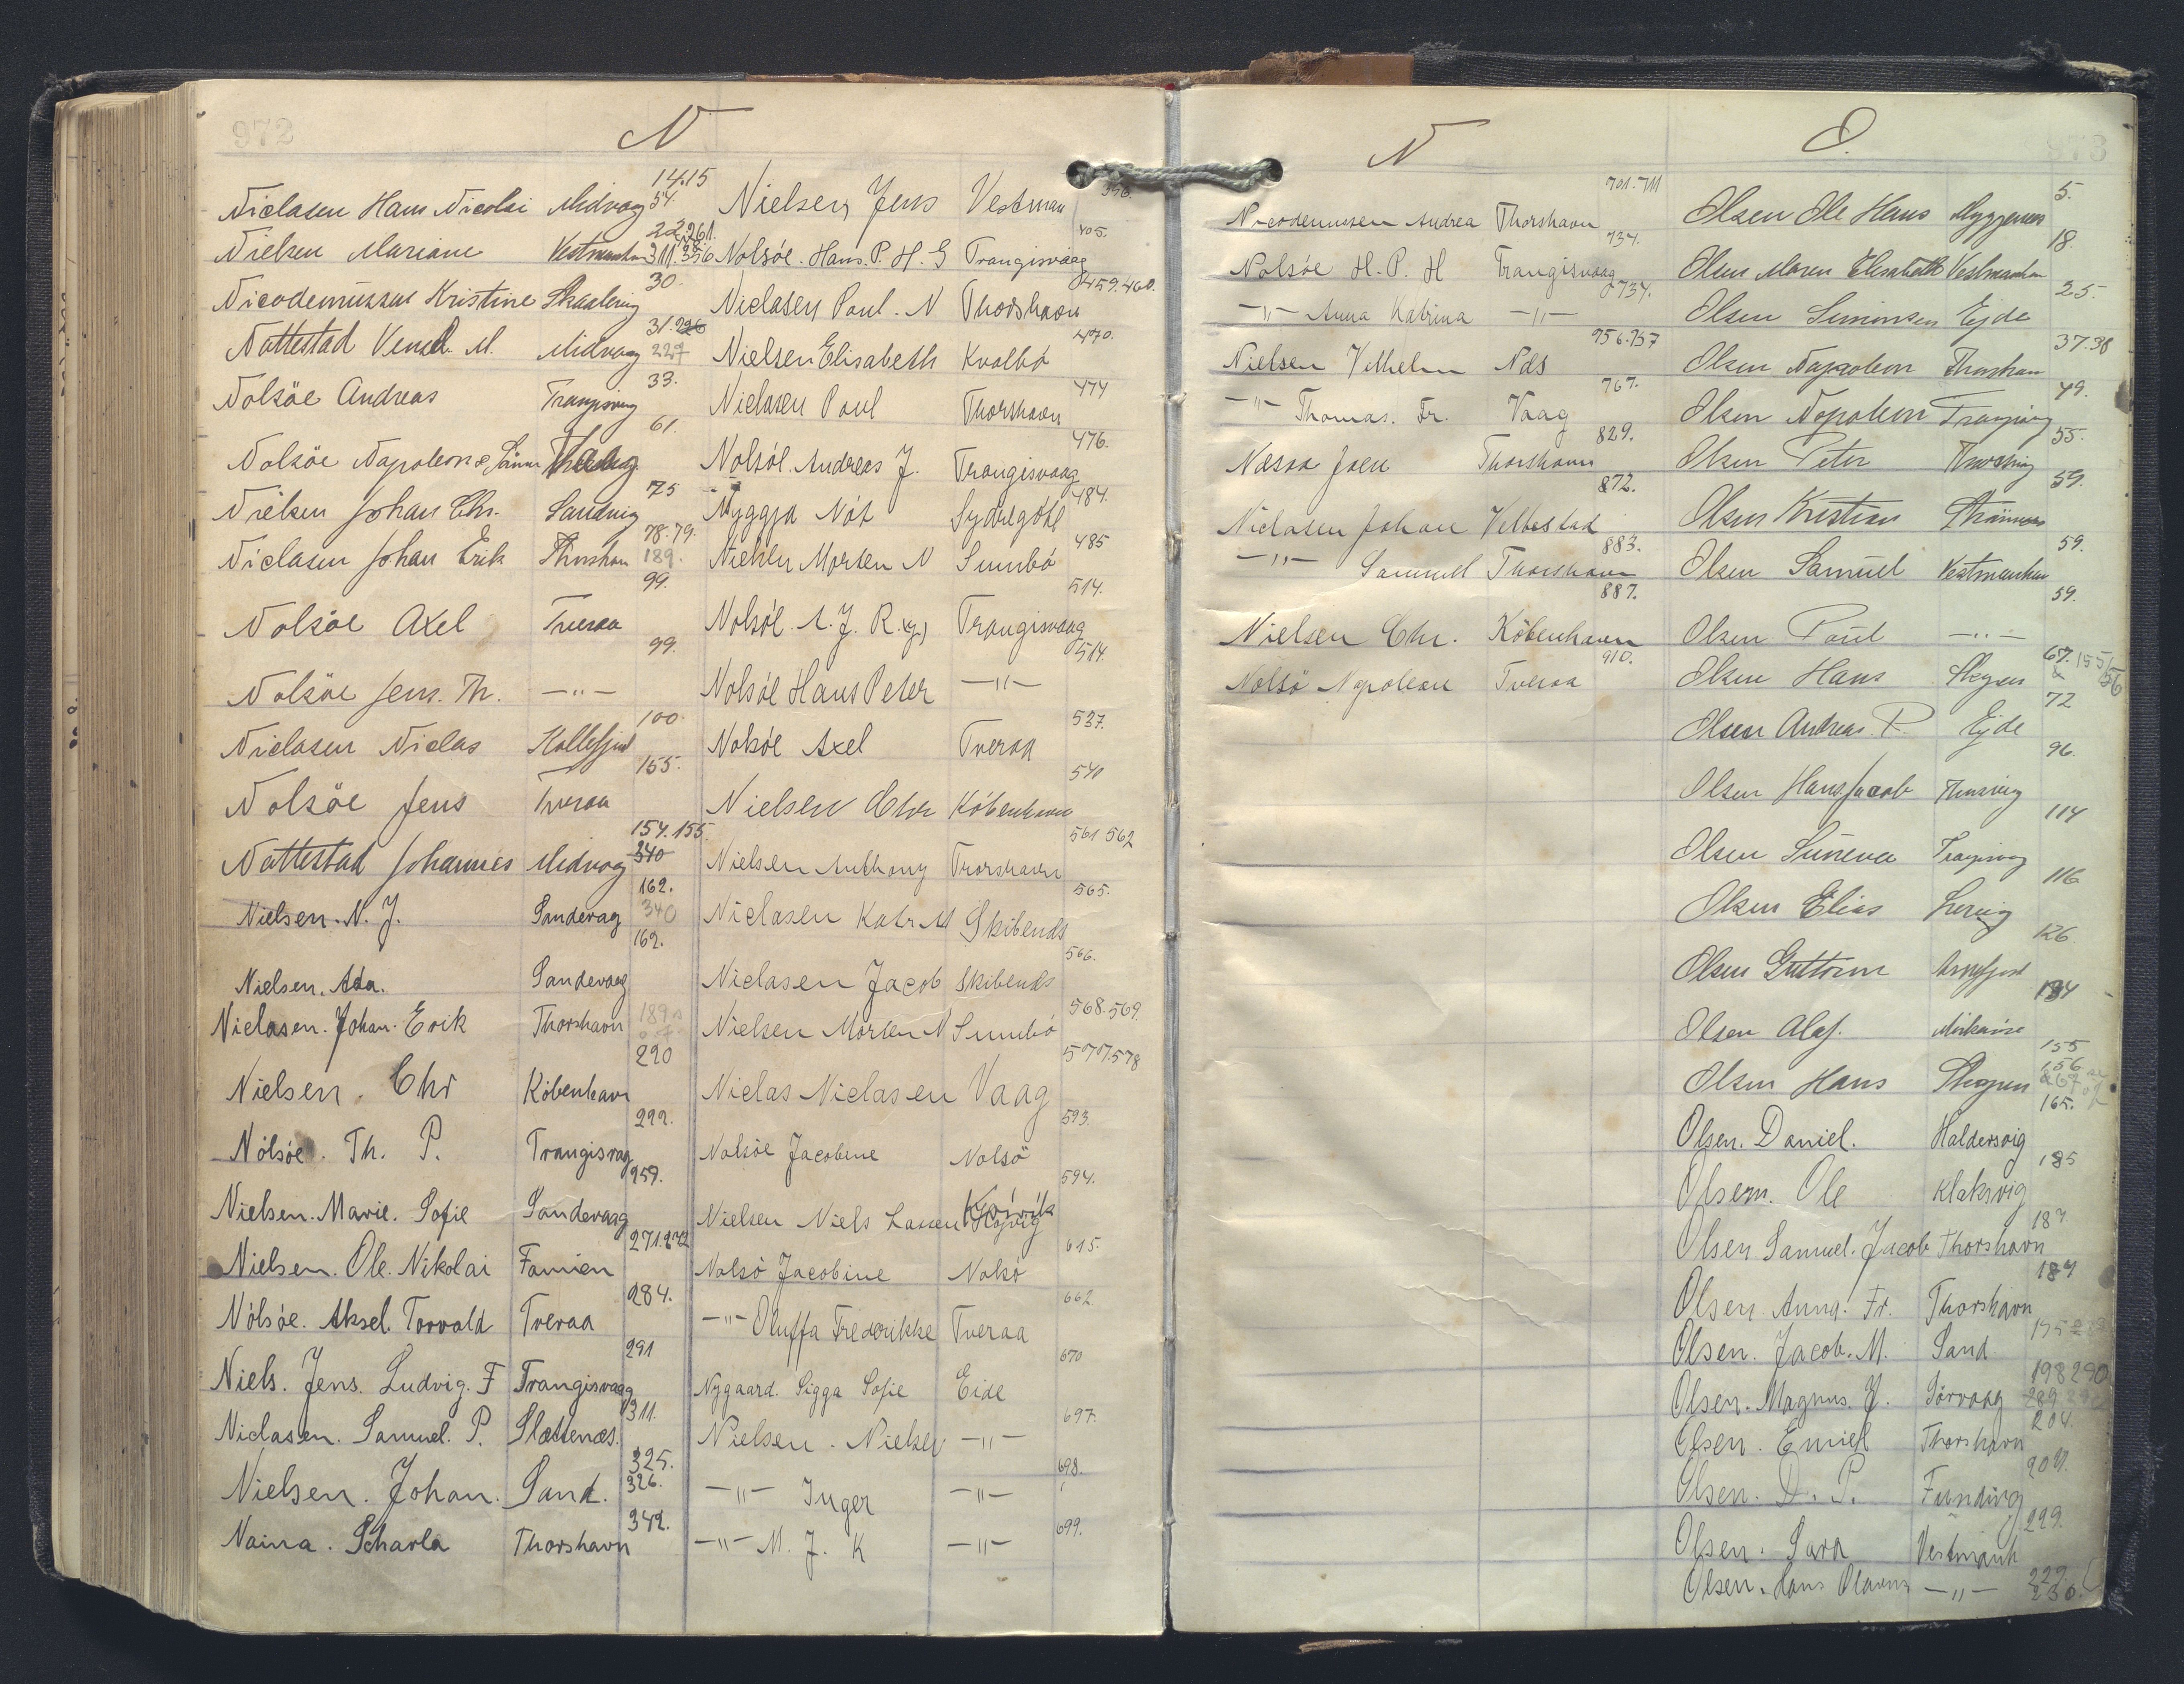 972
N
Niclasen Hans Nicolai Midvaag 14.15 54.
Nielsen Mariane Vestmanhn 22,261. 311.356
Nicodemussen Kristine Skaalevig 30.
Nattestad Vensel. M. Midvaag 31.226 227
Nolsöe Andreas Trangisvaag 33.
Nolsöe Napoleon & Sönner 61.
Nielsen Johan Chr. Sandvig 75
Niclasen Johan Erik Thorshavn 78.79. 189.
Nolsöe Axel Tveraa 99.
Nolsöe Jens. Th. —"— 99.
Niclasen Niclas Kollefjord 100.
Nolsöe Jens Tveraa 155.
Nattestad Johannes Midvag 154.155. 340
Nielsen. N. J. Sandevag 162. 340
Nielsen. Ada. Sandevaag 162.
Niclasen. Johan. Erik Thorshavn 189
Nielsen. Chr Köbenhavn 220
Nölsöe. Th. P. Trangisvag 222.
Nielsen. Marie. Sofie Sandevaag 257.
Nielsen. Ole. Nikolai Famien 271.272
Nölsöe. Aksel. Torvald Tveraa 284.
Niels. Jens. Ludvig. F Trangisvaag 291
Niclasen. Samuel. P. Slættenæs. 311.
Nielsen. Johan. Sand. 325. 326.
Naina. Scharla Thorshavn 342.
Nielsen Jens Vestman 396.
Nolsöe. Hans. P. H. G Trangisvaag 405.
Niclasen Poul. N Thorshavn 459.460.
Nielsen Elisabeth Kvalbö 470.
Niclasen Poul Thorshavn 474
Nolsöe. Andreas J. Trangisvaag 476.
Nyggja Nót Sydregöte 484.
Nielsen Morten N Sumbö 485
Nolsöe. A. J. R. Trangisvaag 514.
Nolsöe Hans Peter —"— 514.
Nolsöe Axel Tveraa 537.
Nielsen Chr Köbenhavn 540
Nielsen Anthony Thorshavn 561 562
Niclasen Katr. M Skibends 565.
Niclasen Jacob Skibends 566.
Nielsen Morten N Sumbö 568.569.
Niclas Niclasen Vaag 577.578
Nolsöe Jacobine Nolsö 593.
Nielsen Niels Lassen Kvivik 594.
Nolsö Jacobine Nolsö 615.
—"— Oluffa Frederikke Tveraa 662
Nygaard. Sigga Sofie Eide 670
Nielsen. Nielsen —"— 697.
—"— Inger —"— 698.
—"— M. J. K —"— 699.
N
Nicodemussen Andrea Thorshavn 701.711
Nolsöe H. P. H Trangisvaag 734.
—"— Anna Katrina —"— 734.
Nielsen Vilhelm Nds 756.757
—"— Thomas. Fr. Vaag 767.
Næsaa Joen Thorshavn 829.
Niclasen Johan Velbestad 872.
—"— Sammuel Thorshavn 883.
Nielsen Chr. Köbenhavn 887.
Nolsö Napoleon Tveraa 910.
O.
973
Olsen Ole Hans Myggenæs 5.
Olsen Maren Elisabeth Vestmanhn 18.
Olsen Simonsen Ejde 25.
Olsen Napoleon Thorshavn 37.38
Olsen Napoleon Trangisvaag 49.
Olsen Peter 55.
Olsen Kristian 59.
Olsen Samuel Vestmanhn 59.
Olsen Poul —"— 59.
Olsen Hans 67. 155 156
Olsen Andreas. P. Ejde 72
Olsen Hans Jacob 96.
Olsen Suneva Trangisvag 114
Olsen Elias 116
Olsen Guttorm Arnefjord 126.
Olsen Olaf. 134
Olsen Hans 155 156 & 67
Olsen. Daniel. Haldersvig 165.
Olsen. Ole Klaksvig 185
Olsen Samuel. Jacob Thorshavn 187
Olsen. Anna. Fr. Thorshavn 187
Olsen. Jacob. M. Sand 195
Olsen. Magnus. J. Sörvaag 198 290 289
Olsen. Emiel Thorshavn 204.
Olsen. D. P. Funding 207.
Olsen. Sara Vestmanh 229.
Olsen. Hans Olavus —"— 229. 230.